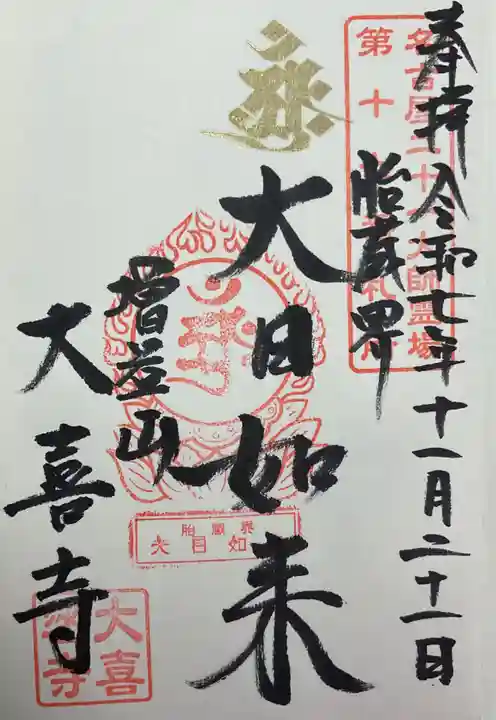 奉拝 令和七年十一月二十一日
名古屋二十一大師霊場
第十
胎蔵界
大日如来
増益山
大喜寺
胎蔵界
大日如
大喜
寺